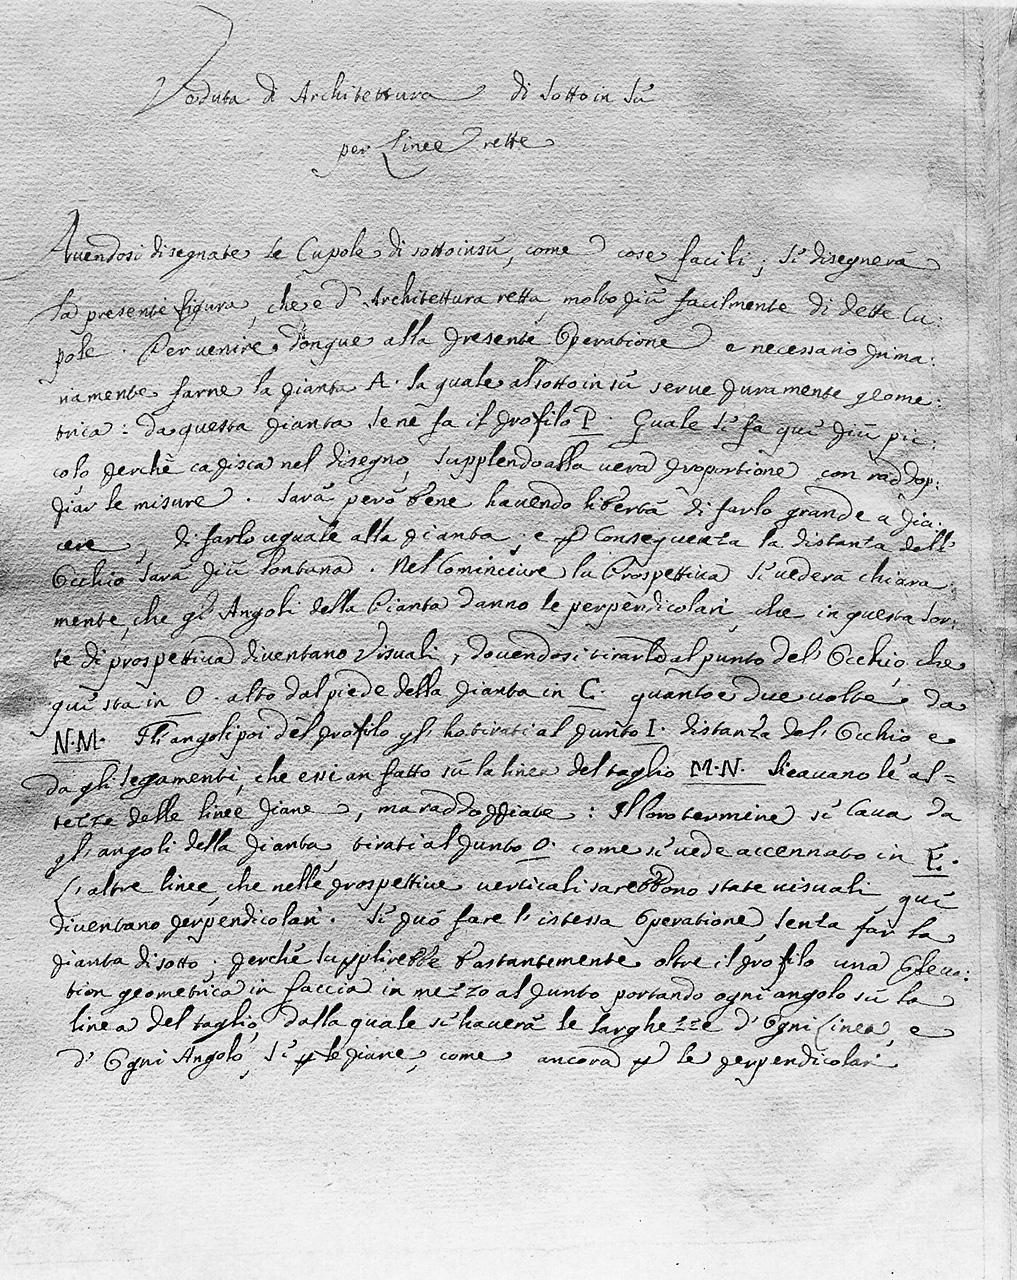 Veduta di Architettura di sotto in sù
per Linee rette
Avendosi disegnate le Cupole di sottoinsù, come cose facili; si disegnerà
la presente figura, che è d'Architettura retta, molto più facilmente di dette Cu:
pole. Per venire dongue alla presente Operatione è necessario prima:
riamente farne la pianta A. la quale al sotto in sù serve puramente geome:
trica: da questa pianta se ne fa il profilo P. Quale si fa quì più pic:
colo perchè capisca nel disegno, supplendo alla vera proportione con raddop:
piar le misure. Sarà però bene havendo libertà di farlo grande a pia:
cere, di farlo uguale alla pianta; e p Conseguenza la distanza dell'
Occhio sarà più lontana. Nel Cominciare la Prospettiva si vederà chiara:
mente, che gl'Angoli della Pianta danno le perpendicolari, che in questa sor:
te di prospettiva diventano Visuali, dovendosi tirarle al punto del'Occhio, che
quì sta in O. alto dal piede della pianta in C. quanto è due volte da
N.M. Gli angoli poi del profilo gl'ho tirati al punto I. distanza del'Occhio e
da gli segamenti, che essi an fatto sù la linea del taglio M.N. si cavano le al=
tezze delle linee piane, ma raddoppiate: Il loro termine si Cava da
gl'angoli della pianta, tirati al punto O. come si vede accennato in E.
L'altre linee, che nelle prospettive verticali sarebbono state visuali, quì
diventano perpendicolari. Si può fare l'istessa Operatione, senza far la
pianta di sotto; perchè supplirebbe bastantemente oltre il profilo una Eleva:
tion geometrica in faccia in mezzo al punto, portando ogni angolo sù la
linea del taglio, dalla quale si haverà le larghezze d'Ogni Linea, e
d'Ogni Angolo, sì p le piane, come ancora p le perpendicolari